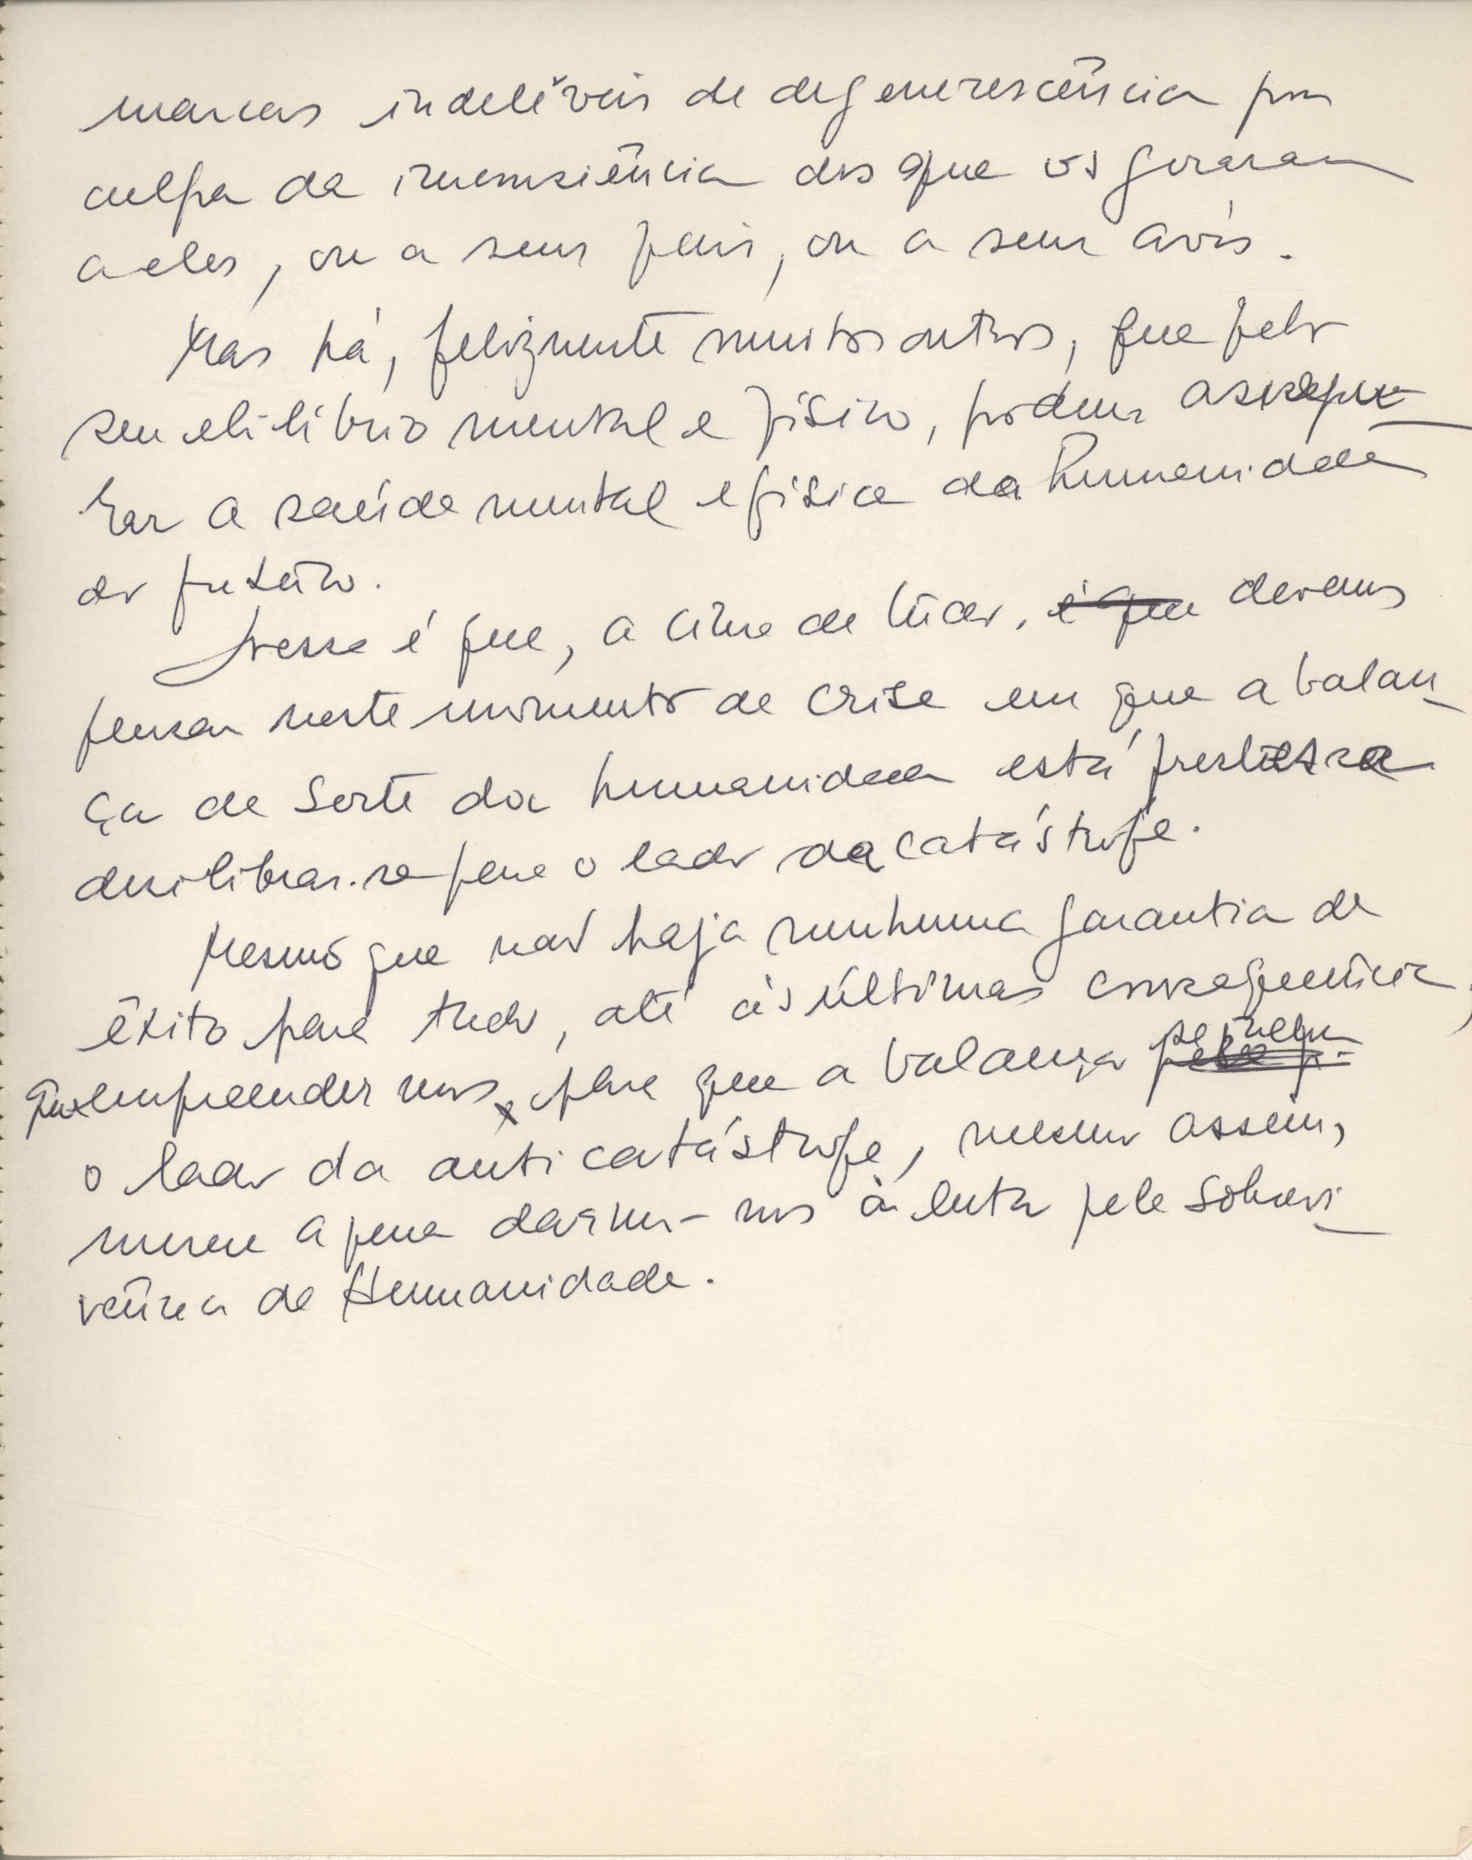 marcas indeléveis de degenerescência por
culpa da inconsciência dos que os geraram
a eles, ou a seus pais, ou a seus avós.
Mas há, felizmente muitos outros, que pelo
seu elilíbrio mental e físico, podem assegu-
rar a saúde mental e física da humanidade
do futuro.
Nessa é que, a cima de tudo, é que devemos
pensar neste momento de crise em que a balan-
ça de sorte da humanidade está prestes a
desilibrar-se para o lado da catástrofe.
Mesmo que não haja nenhuma garantia de
êxito para tudo, até às últimas consequências,
que empreendermos, para que a balança
o lado da anticatástrofe, mesmo assim,
merece a pena darmo-nos à luta pela sobrevi-
vência da Humanidade.